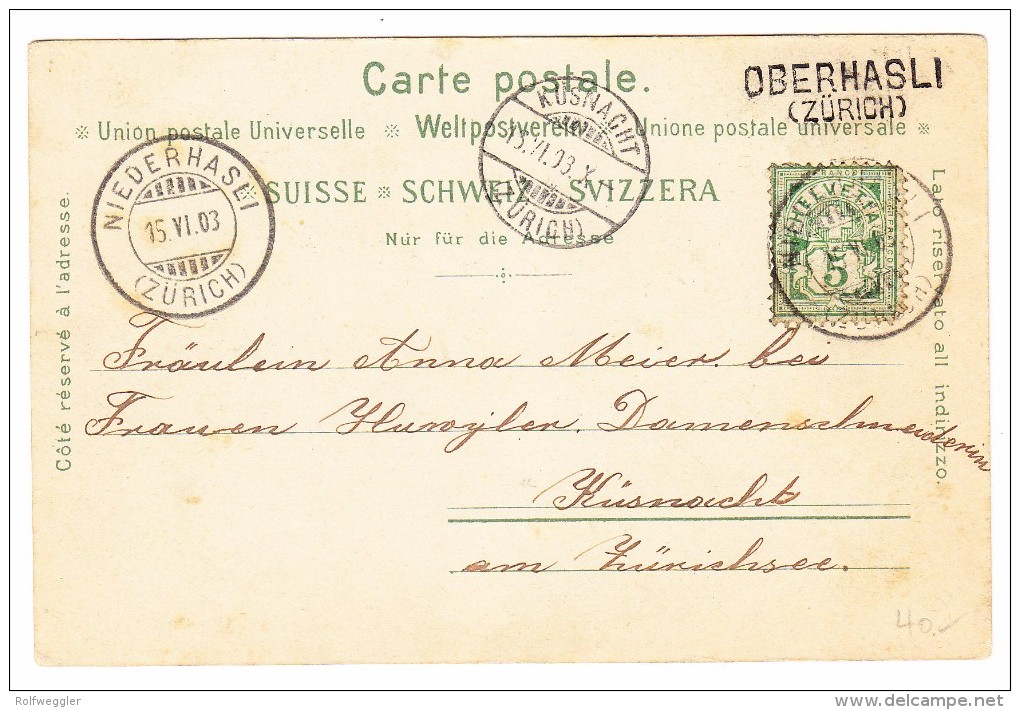 Carte postale.
OBERHASLI
(ZÜRICH)
※ Union postale Universelle ※ Weltpostverein ※ Unione postale universale ※
SUISSE ※ SCHWEIZ ※ SVIZZERA
Nur für die Adresse
KÜSNACHT
15.VI.03.X
(ZÜRICH)
NIEDERHASLI
15.VI.03
(ZÜRICH)
FRANCO
HELVETIA
FRANCO
5
Côté réservé à l'adresse.
Lato riservato all indirizzo.
Fräulein Anna Meier. bei
Frauen Hurvyler. Damenschneiderin
Küsnacht
am Zürichsee.
40.-
Rolfweggler
delcampe.net